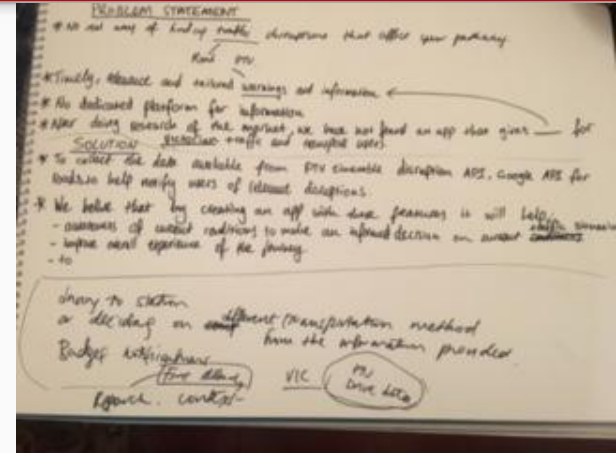 PROBLEM STATEMENT
* No real way of finding traffic disruptions that affect your pathway
Road PTV
* Timely, relevant and tailored warnings and information
* No dedicated platform for information
* After doing research of the market, we have not found an app that gives — for
SOLUTION victorian traffic and transport users
* To collect the data available from PTV timetable disruption API, Google API for
roads to help notify users of relevant disruptions.
* We believe that by creating an app with these features it will help
- awareness of current conditions to make an informed decision on current
- improve overall experience of the journey
- to
driving to station
or deciding on different transportation method
from the information provided
Badges notifications
Research. context-
VIC
PTV
Drive data